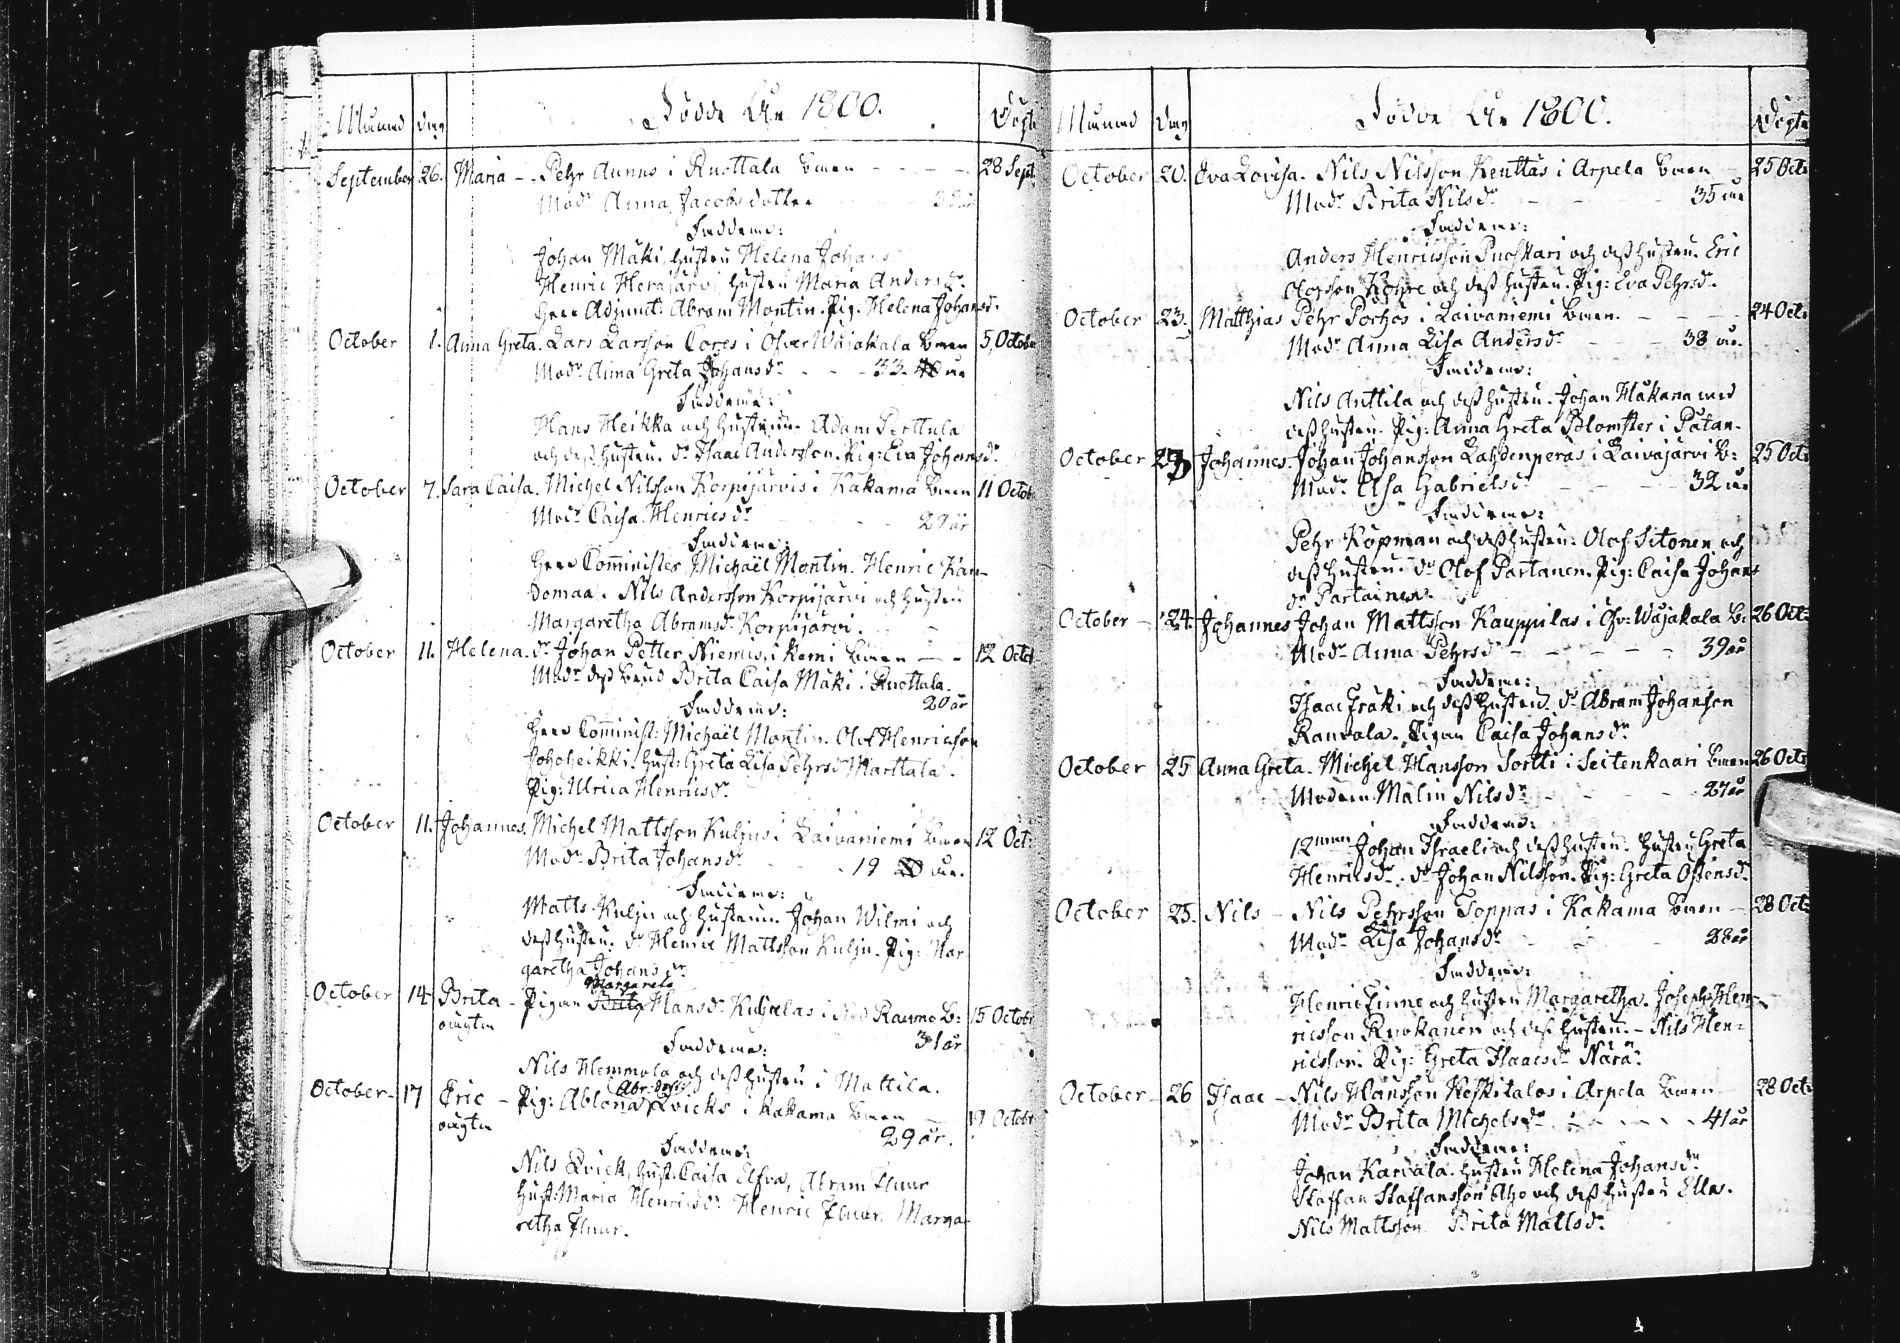 Månad dag Födde Åhr 1800. Döpte
September 26. Maria - Pehr Aunus i Ruottala Bÿen 28 Sept.
Modr Anna Jacobsdotter
Faddrarne:
Johan Mäki, hustru Helena Johans
Henric Herajärvi hustru Maria Andersdr.
Herr Adjunct: Abram Montin. Pig. Helena Johansdr.
October 1. Anna Greta. Lars Larsson Cores i Öfver Wojakala Bÿen 5 Octobr
Modr Anna Greta Johansdr - - 33 år
Faddrarne:
Hans Heikka och hustrun. Adam Perttula
och dess hustru. dr Isaac Andersson. Pig: Eva Johansdr
October 7. Sara Caisa. Michel Nilsson Korpijärvis i Kakama Bÿen 11 Octobr
Modr Caisa Henricsdr 29 år
Faddrarne:
Herr Comminister Michaël Montin. Henric Kan-
domaa. Nils Andersson Korpijärvi och hustru
Margaretha Abramsdr Korpijärvi.
October 11. Helena. dr Johan Petter Niemus, i Kemi Bÿen - - 12 Octob
Modr dess Brud Brita Caisa Mäki i Ruottala.
Faddrarne: 20 år
Herr Comminist: Michaël Montin. Olof Henricsson
Johoheikki. Hust: Greta Lisa Pehrsdr Marttala.
Pig: Ulrica Henricsdr.
October 11. Johannes. Michel Mattsson Kuljus i Laivaniemi Bÿen 12 Oct:
Modr Brita Johansdr - 19 år.
Faddrarne:
Matts Kulju och hustrun. Johan Wilmi och
dess hustru. dr Henric Mattsson Kulju. Pig: Mar
garetha Johansdr
Margareta
October 14 Brita - Pigan Brita Hansdr Kuhrelas i Ned Raumo B: 15 Octobr
oägta 31 år
Faddrarne:
Nils Hemmola och dess hustru i Mattila.
October - 17 Eric - Pig: Ablona Qvicks i Kakama Bÿen 19 Octobr
oägta 29 år.
Faddrarne:
Nils Qvick, hust: Caisa Elfva, Abram Fluur
hust: Maria Henricsdr Henric Fluur. Marga-
retha Fluur.
Månad dag Födde Åhr 1800. Döpte
October 20. Eva Lovisa. Nils Nilsson Kenttäs i Arpela Bÿen 25 Oct:
Modr Brita Nilsdr - - - 35 år
Faddrarne:
Anders Henricsson Puoskari och dess hustru. Eric
Olofsson Köhre och dess hustru. Pig: Eva Pehrsdr.
October 23. Matthias Pehr Pörhös i Laivaniemi Bÿen. - - 24 Oct:
Modr Anna Lisa Andersdr - - 38 år.
Faddrarne:
Nils Anttila och dess hustru. Johan Häkana med
dess hustru. Pig: Anna Greta Blomster i Pätan.
October 23 Johannes. Johan Johansson Lahdenperäs i Laivajärvi B: 25 Oct:
Modr Elsa Gabrielsdr - - 32 år
Faddrarne:
Pehr Köpman och dess hustru: Olof Sitonen och
dess hustru. dr Olof Partanen. Pig: Caisa Johans
dr Partainen.
October - 24. Johannes Johan Mattsson Kauppilas i Öfv: Wojakala B: 26 Oct:
Modr Anna Pehrsdr - - - - 39 år
Faddrarne:
Isaac Fräki och dess hustru. dr Abram Johansson
Rautola. Pigan Caisa Johansdr
October 25 Anna Greta. Michel Hansson Sortti i Seitenkaari Bÿen 26 Oct:
Modren Malin Nilsdr - - - 27 år
Faddrarne:
12man Johan Israeli och dess hustru. hustru Greta
Henricsdr. dr Johan Nilsson. Pig: Greta Östensdr.
October 25. Nils - Nils Pehrsson Toppas i Kakama Bÿen - 28 Oct:
Modr Lisa Johansdr - - 28 år
Faddrarne:
Henric Zinne och hustru Margaretha. Joseph Hen-
ricsson Ruokanen och dess hustru. - Nils Hen-
ricsson. Pig: Greta Isaacsdr Närä.
October - 26 Isaac - Nils Hansson Keskitalos i Arpela Bÿen 28 Oct:
Modr Brita Michelsdr - - - 41 år
Faddrarne:
Johan Karvala. hustru Helena Johansdr
Staffan Staffansson Aho och dess hustru Ella.
Nils Mattsson Brita Mattsdr